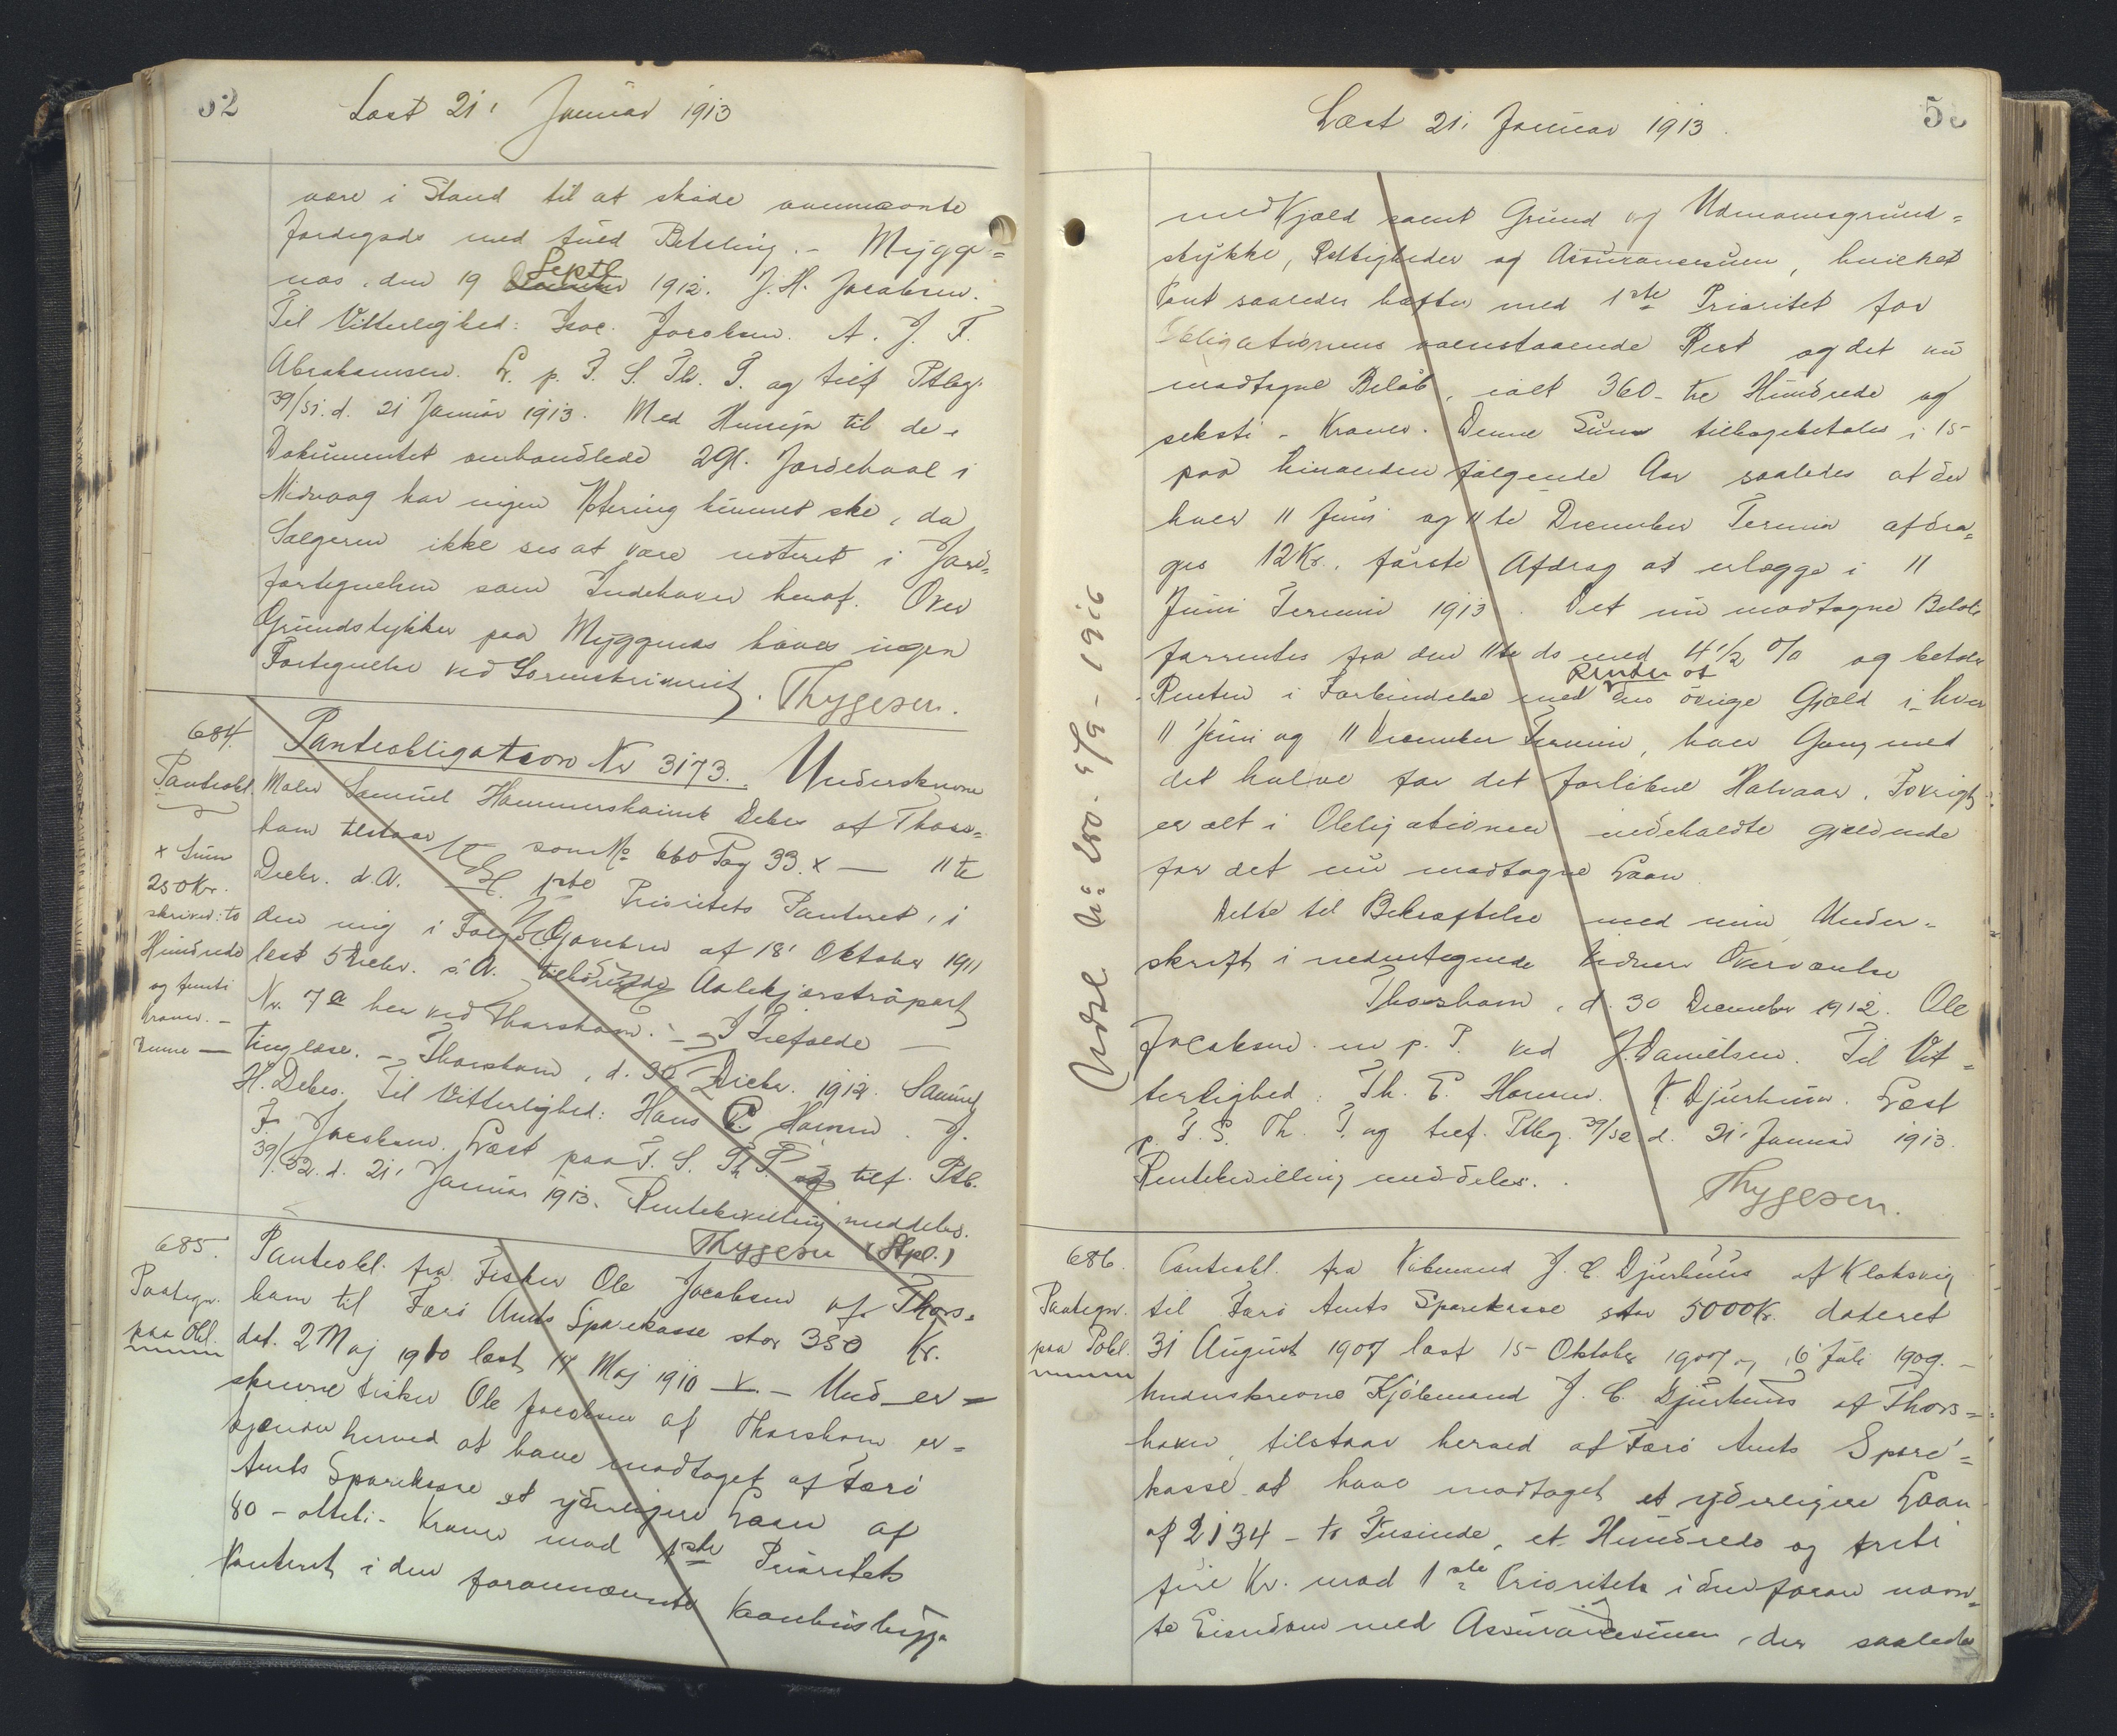 52
Læst 21' Januar 1913
være i Stand til at skøde ovennævnte
Jordegods med fuld Betaling. - Mygge=
næs, den 19 Septbr 1912. J. H. Jacobsen.
Til Vitterlighed: Isac. Jacobsen. A. J. F.
Abrahamsen. L. p. F. S. Th. T. og tilf Ptbg.
39/51. d. 21 Januar 1913. Med Hensyn til de i
Dokumentet omhandlede 2 Gl. Jordehaal i
Midvaag har ingen Notering kunnet ske, da
Sælgeren ikke ses at være noteret i Jord=
fortegnelsen som Indehaver heraf. Over
Grundstykker paa Myggenæs haves ingen
Fortegnelse ved Sorenskriveriet. Thygesen.
684.
Panteobl.
Panteobligation Nr 3173. Underskrevne
Maler Samuel Hammershaimb Debes af Thors=
havn tilstaar som No 660 Pag 33. x — 11te
Decbr. d. A. 1ste Prioritets Panteret, i
den mig i Følge Skjøde af 18' Oktober 1911
læst 5 Decbr. s. A. tilhørende
Nr. 7a her ved Thorshavn. -
Tinglæse. - Thorshavn, d. 30 Decbr. 1912. Samuel
H. Debes. Til Vitterlighed: Hans C. Hansen. J.
F. Jacobsen. Læst paa F. S. Th. T. og tilf. Ptb.
39/52. d. 21' Januar 1913. Rentebevilling meddeles.
Thygesen (Stpl.)
x Sum
250 Kr.
skriver: to
Hundrede
og femti
Kroner. -
Denne —
685.
Paategn.
paa Obl.
Panteobl. fra Fisker Ole Jacobsen af Thors=
havn til Færø Amts Sparekasse stor 380 Kr.
dat. 2 Maj 1910 læst 17 Maj 1910 - x - Under=
skrevne Fisker Ole Jacobsen af Thorshavn er=
kjender herved at have modtaget af Færø
Amts Sparekasse et yderligere Laan af
80 - otteti - Kroner mod 1ste Prioritets
Panteret i den forannævnte Vaanhusbygn.
Læst 21' Januar 1913.
med Kjæld samt Grund og Udmarksgrund=
stykke, Rettigheder og Assurancesum, hvilket
Pant saaledes hæfter med 1ste Prioritet for
Obligationens ovenstaaende Rest og det nu
modtagne Beløb, ialt 360 - tre Hundrede og
seksti - Kroner. Denne Sum tilbagebetales i 15
paa hinanden følgende Aar saaledes at der
hver 11 Juni og 11te December Termin afdra=
ges 12 Kr., første Afdrag at erlægge i 11
Juni Termin 1913. Det nu modtagne Beløb
forrentes fra den 11te ds med 4 1/2 % og betales
Renten i Forbindelse med Renten af den øvrige Gjæld i hver
11 Juni og 11 December Termin, hver Gang med
det halve for det forløbne Halvaar. Forøvrigt
er alt i Obligationen indeholdte gjældende
for det nu modtagne Laan.
Dette til Bekræftelse med min Under=
skrift i nedentegnede Vidners Overværelse
Thorshavn, d. 30 December 1912. Ole
Jacobsen m. p. P. ved J. Danielsen. Til Vit=
terlighed: Th. E. Hansen. K. Djurhuus. Læst
p. F. S. Th. T. og tilf. Ptbg. 39/52 d. 21' Januar 1913.
Rentebevilling meddeles.
Thygesen.
Udsl. No 250. 5/9 - 1916
686.
Paategn.
paa Pobl.
Panteobl. fra Købmand J. C. Djurhuus af Klaksvig
til Færø Amts Sparekasse stor 5000 Kr. dateret
31 August 1907 læst 15 Oktober 1907 og 16 Juli 1909. -
Underskrevne Kjøbmand J. C. Djurhuus af Thors=
havn, tilstaar herved af Færø Amts Spare=
kasse at have modtaget et yderligere Laan
af 2134 - to Tusinde, et Hundrede og treti
fire Kr. mod 1ste Prioritets i den foran nævn=
te Eiendom med Assurancesum, der saaledes